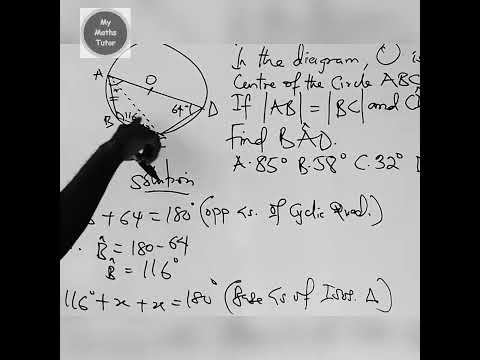 My
Maths
Tutor
In the diagram, O is
Centre of the Circle ABC
If |AB| = |BC| and
Find BÂD.
A. 85° B. 58° C. 32°
A
O
x
64°
D
B
116°
Solution
+ 64 = 180° (opp ∠s. of Cyclic Quad.)
B̂ = 180 - 64
B̂ = 116°
116° + x + x = 180° (Base ∠s of Isos. Δ)